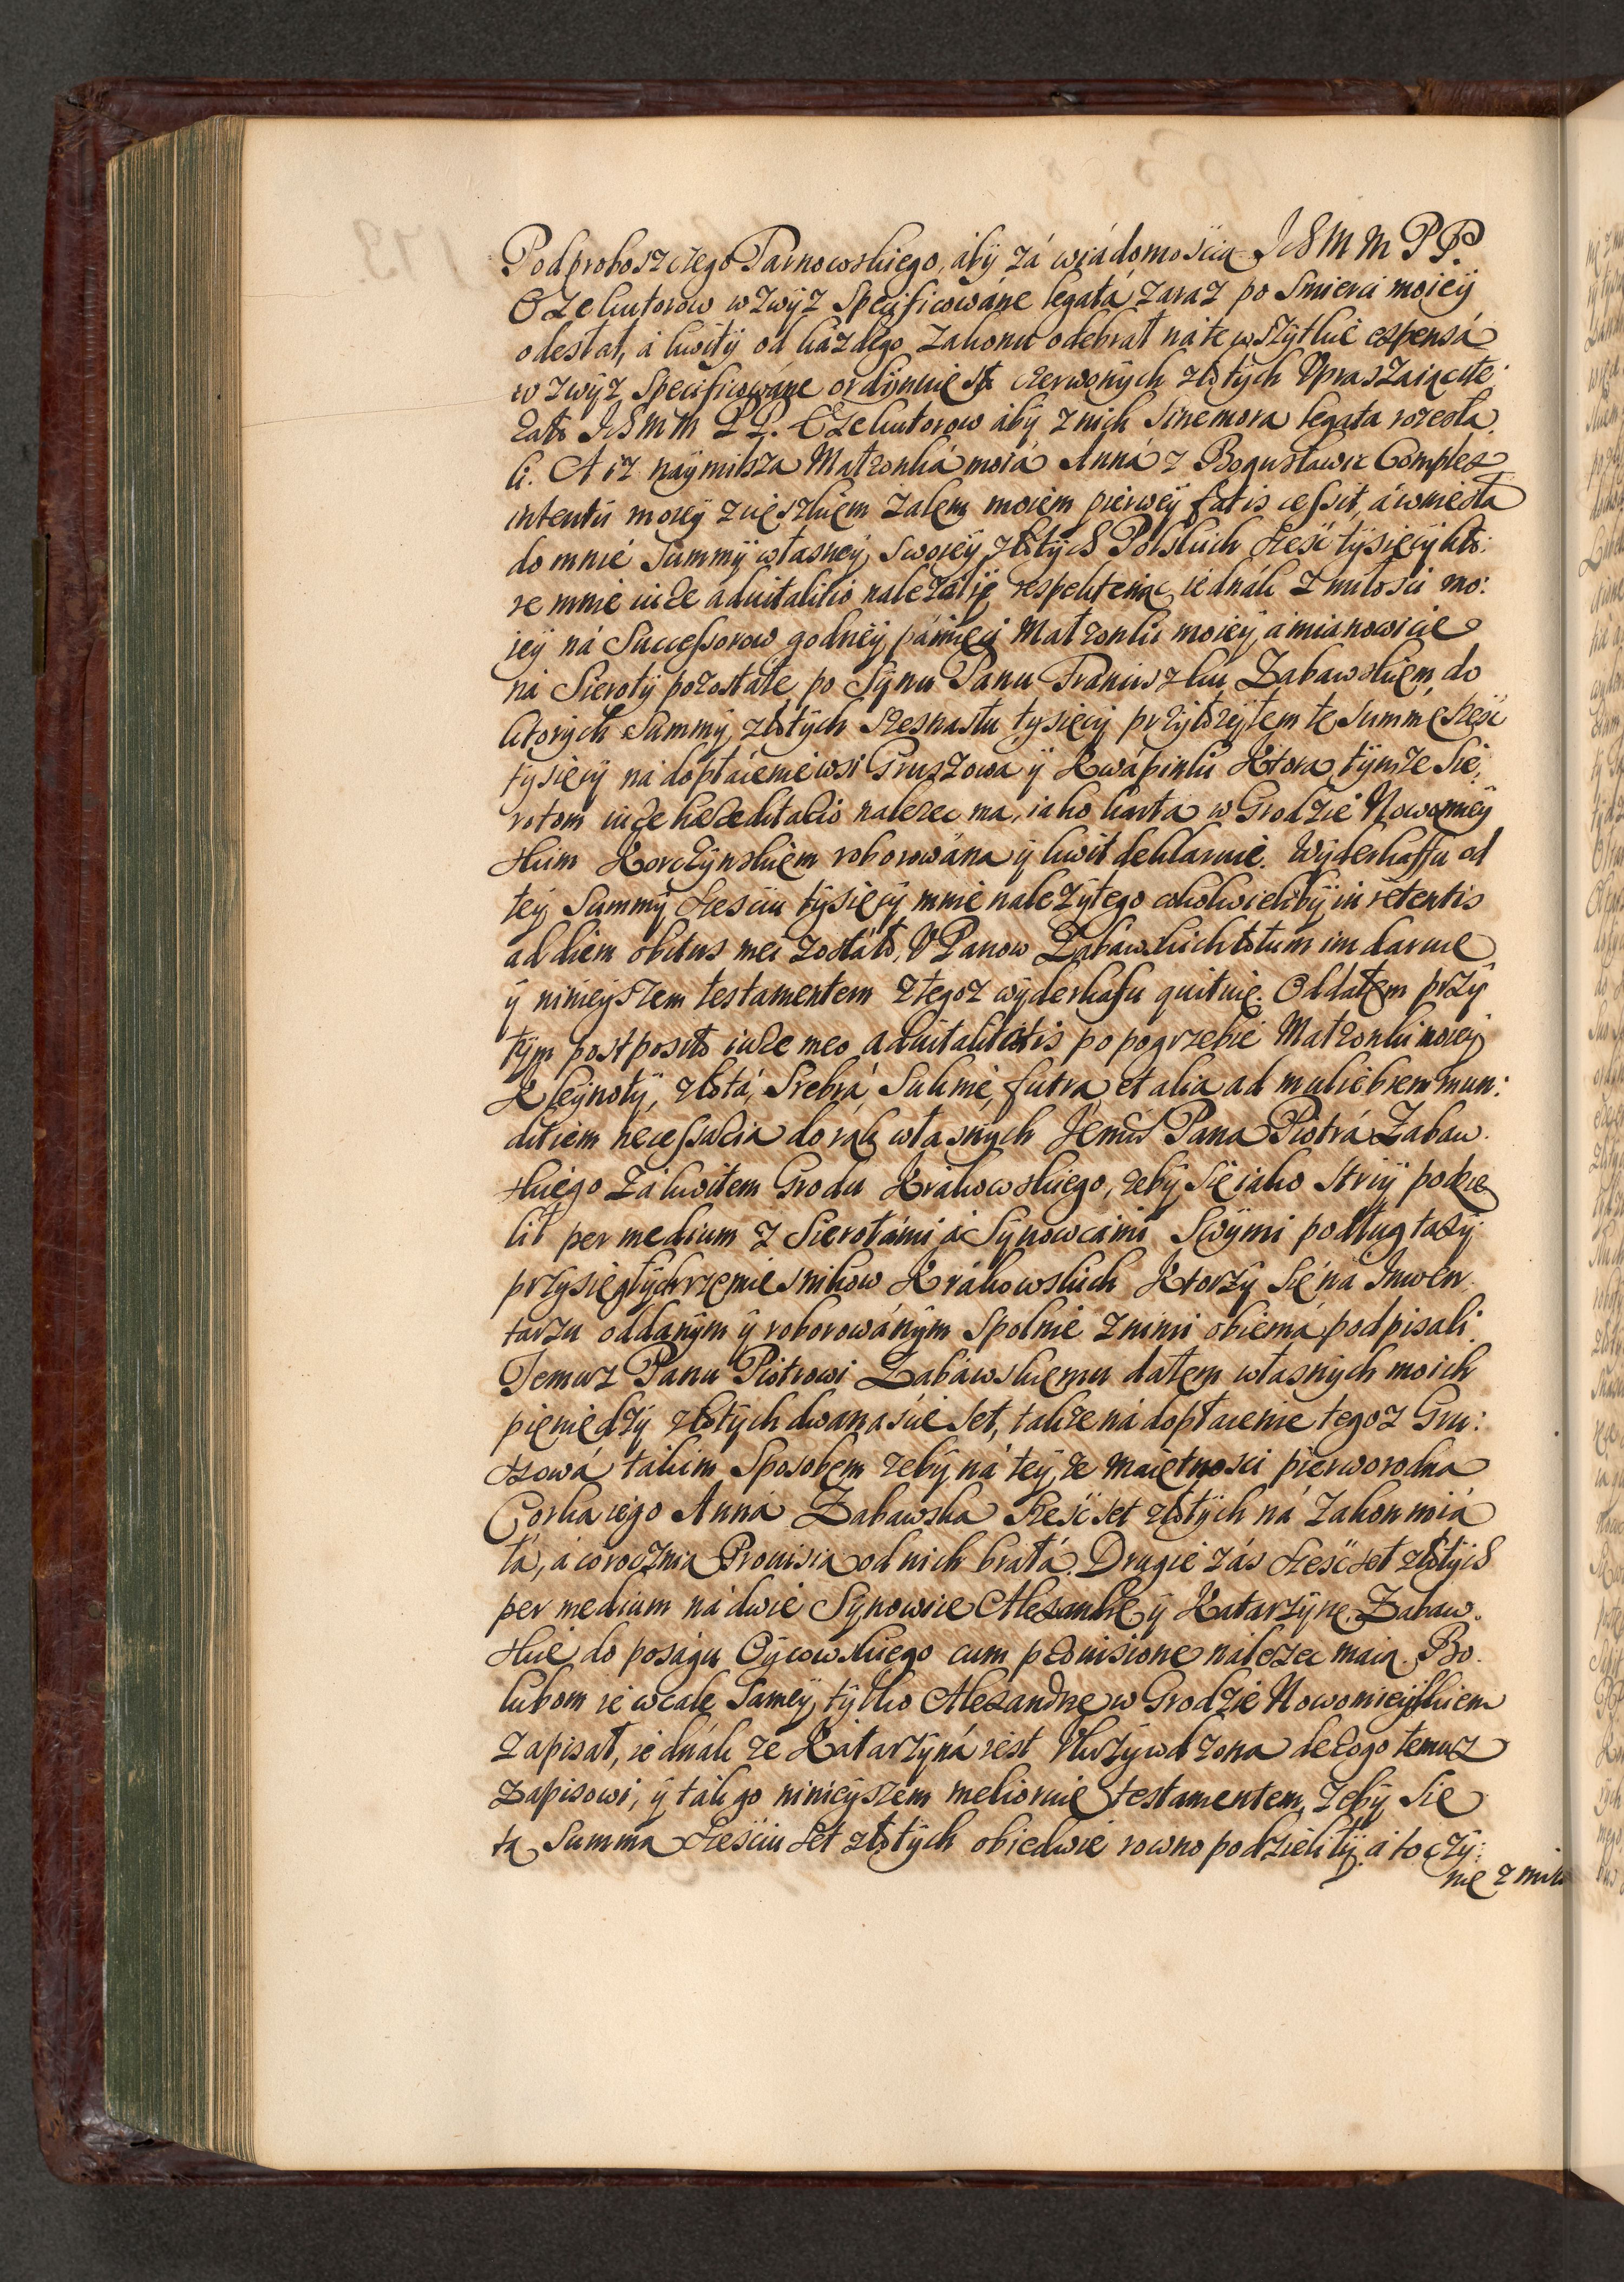 Podproboszczego Tarnowskiego, aby zá wiádomoscią Ich M M P P.
Exekutorow wzwyż specificowáne legatá zaraz po smierci moiey
odesłał, á kwity od każdego zakonu odebrał ná te wszytkie expensá
wzwyż specificowáne ordinuię sto czerwonych złotych Upraszaiąc ite:
rato Ich M M P P. Exekutorow áby z nich sine mora legata rozesła
li. A iż naymilsza Małżonká moiá Anná z Bogusławic Complex
intentu moiey z cięszkiem żalem moiem pierwey fatis cessit, á wniosła
do mnie Summy własney swoiey złotych Polskich sześć tysięcy kto:
re mnie iure advitalitio należáły respektuiąc iednák z miłosci mo:
iey ná Successorow godney pámięci Małżonki moiey, á mianowicie
ná Sieroty pozostałe po Synu Panu Franciszku Zabawskiem, do
ktorych Summy złotych szesnastu tysięcy przyłożyłem tę summę sześć
tysięcy ná dopłácenie wsi Gruszowa y Kwápinki Ktora tymże Sie:
rotom iure hæreditario należec ma, iako karta w Grodzie Nowomiey
skim Korczynskiem roborowána y kwit deklaruie. Wyderkaffu od
tey Summy sześciu tysięcy mnie należytego cokolwiekby in retentis
ad diem obitus mei zostáło, U Panow Zabáwskich totum im daruię
y nimeyszem testamentem z tegoż wyderkafu quituię. Oddałem przy
tym postposito iure meo advitalitatis po pogrzebie Małżonki moiey
Kleynoty, złotá, Srebrá, Suknie, futra, et alia ad muliebrem mun:
ditiem necessaria do rąk własnych Jemći Pana Piotrá Zabaw
skiego zá kwitem Grodu Krákowskiego, żeby się iako Stryi podzie
lił per medium z Sierotámi á Synowcámi Swymi podług taxy
przysięgłych rzemiesnikow Krákowskich Ktorzy się ná Inwen
tarzu oddánym y roborowánym spolnie z nimi obiemá podpisali.
Temuż Panu Piotrowi Zabáwskiemu dałem własnych moich
pieniędzy złotych dwanaście set, także ná dopłacenie tegoż Gru:
szowá takim sposobem żeby ná tey że maiętnosci pierworodna
Corka iego Anná Zabawska sześć set złotych ná zakon miá
ła, á coroczna Prouisia od nich brałá. Drugie zás sześć set złotych
per medium ná dwie Synowice Alexandrę y Katarzynę Zabaw.
skie do poságu Oycowskiego cum prouisione náleżec maią. Bo
lubom ie wcale Samey tylko Alexandrze w Grodzie Nowomieyskiem
zapisał, iednák że Katarzyná iest Ukrzywdzona derogo temuż
Zapisowi, y ták go nimeyszem melioruię testamentem, żeby się
tą Summą sześciu set złotych obiedwie rowno podzieliły, á to czy:
nię z miło